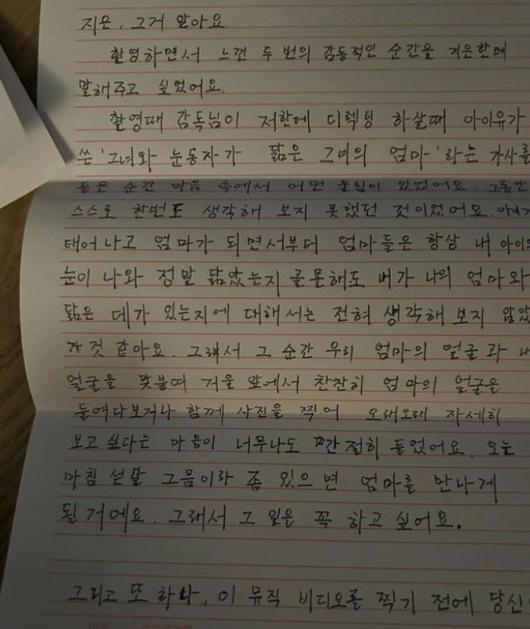 지은, 그거 알아요
촬영하면서 느낀 두 번의 감동적인 순간을 지은한테
말해주고 싶었어요.
촬영때 감독님이 저한테 디렉팅 하실때 아이유가
쓴 '그녀와 눈동자가 닮은 그녀의 엄마'라는 가사를
듣는 순간 마음 속에서 어떤 울림이 있었어요. 그동안
스스로 한번도 생각해 보지 못했던 것이었어요. 아이가
태어나고 엄마가 되면서부터 엄마들은 항상 내 아이의
눈이 나와 정말 닮았는지 골몰해도 내가 나의 엄마와
닮은 데가 있는지에 대해서는 전혀 생각해 보지 않았
던것 같아요. 그래서 그 순간 우리 엄마의 얼굴과 내
얼굴을 맞붙여 거울 앞에서 찬찬히 엄마의 얼굴은
들여다보거나 함께 사진을 찍어 오래오래 자세히
보고 싶다는 마음이 너무나도 간전히 들었어요. 오늘
마침 섣달 그믐이라 좀 있으면 엄마를 만나게
될거예요. 그래서 그 일은 꼭 하고 싶어요.
그리고 또 하나, 이 뮤직 비디오를 찍기 전에 당신